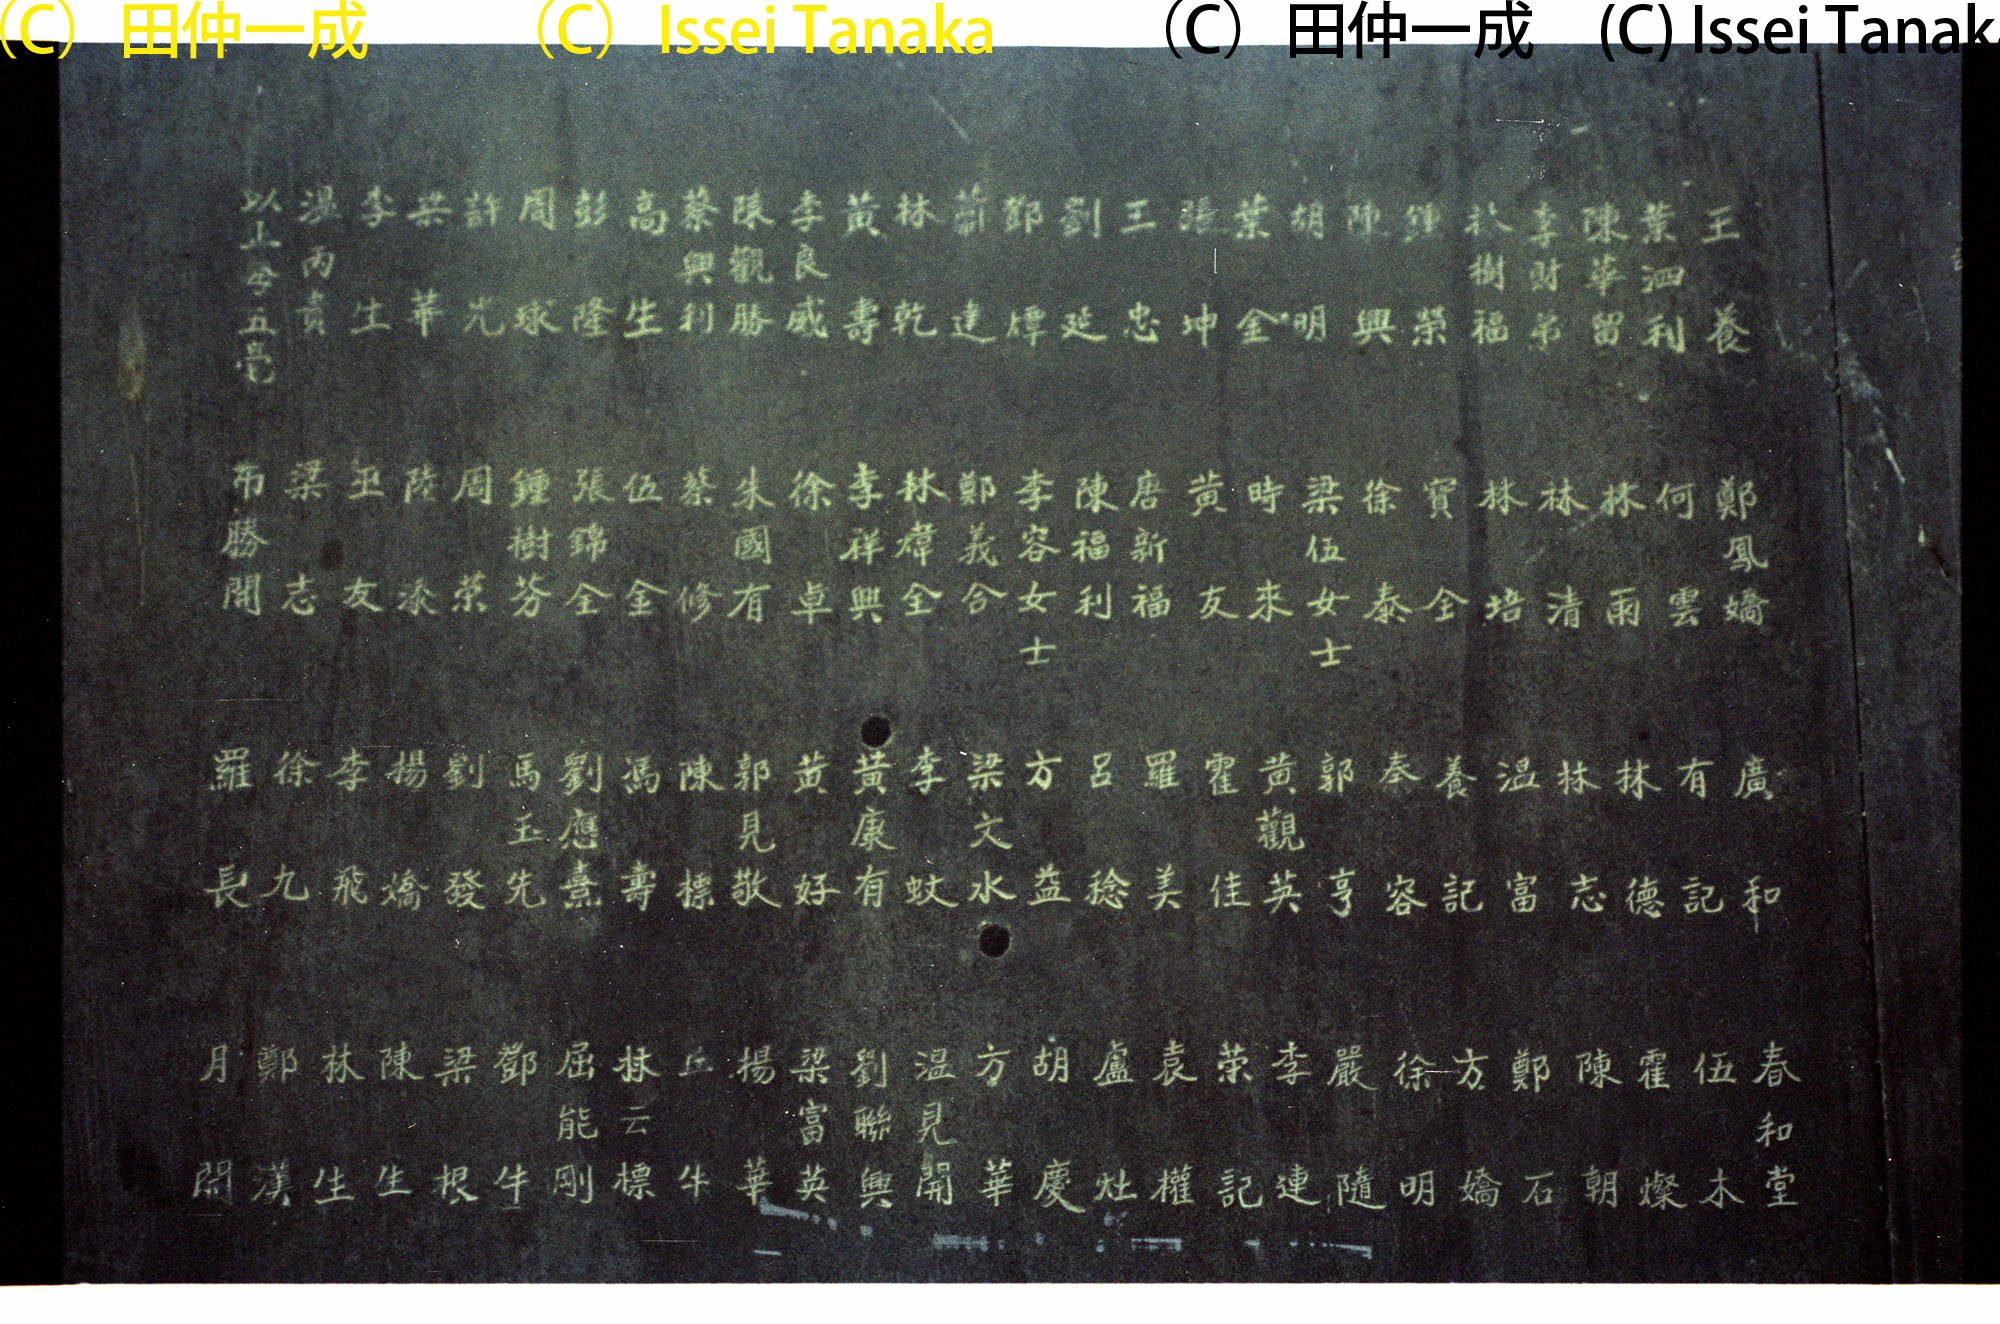 （C） 田仲一成 （C） Issei Tanaka （C） 田仲一成 (C) Issei Tanak
王養
葉泗利
陳華留
李財弟
樹福
鍾榮
陳興
胡明
葉金
張坤
王忠
劉延
鄧
達
林乾
黃壽
李良威
陳觀勝
蔡興利
高生
彭隆
周球
許光
梁華
李生
溫丙貴
以上每五毫
鄭鳳嬌
何雲
林雨
林清
林培
寶全
徐泰
梁伍女士
時來
黃友
唐新福
陳福利
李容女士
鄭義合
林葦全
李祥興
徐卓
朱國有
蔡修
伍金
張錦全
鍾樹芬
周荣
陸添
巫友
梁志
布勝開
廣和
有記
林德
林志
温富
養記
秦容
郭亨
黃觀英
霍佳
羅美
呂稔
方益
梁文水
李蚊
黃康有
黃好
郭見敬
陳標
馮壽
劉應熹
馬玉先
劉發
楊嬌
李飛
徐九
羅長
春和堂
伍木
霍燦
陳朝
鄭石
方嬌
徐明
嚴隨
李連
荣記
袁權
盧灶
胡慶
方華
温見開
劉聯興
梁富英
楊華
丘牛
林云標
屈能剛
鄧牛
梁根
陳生
林生
鄭漢
月開